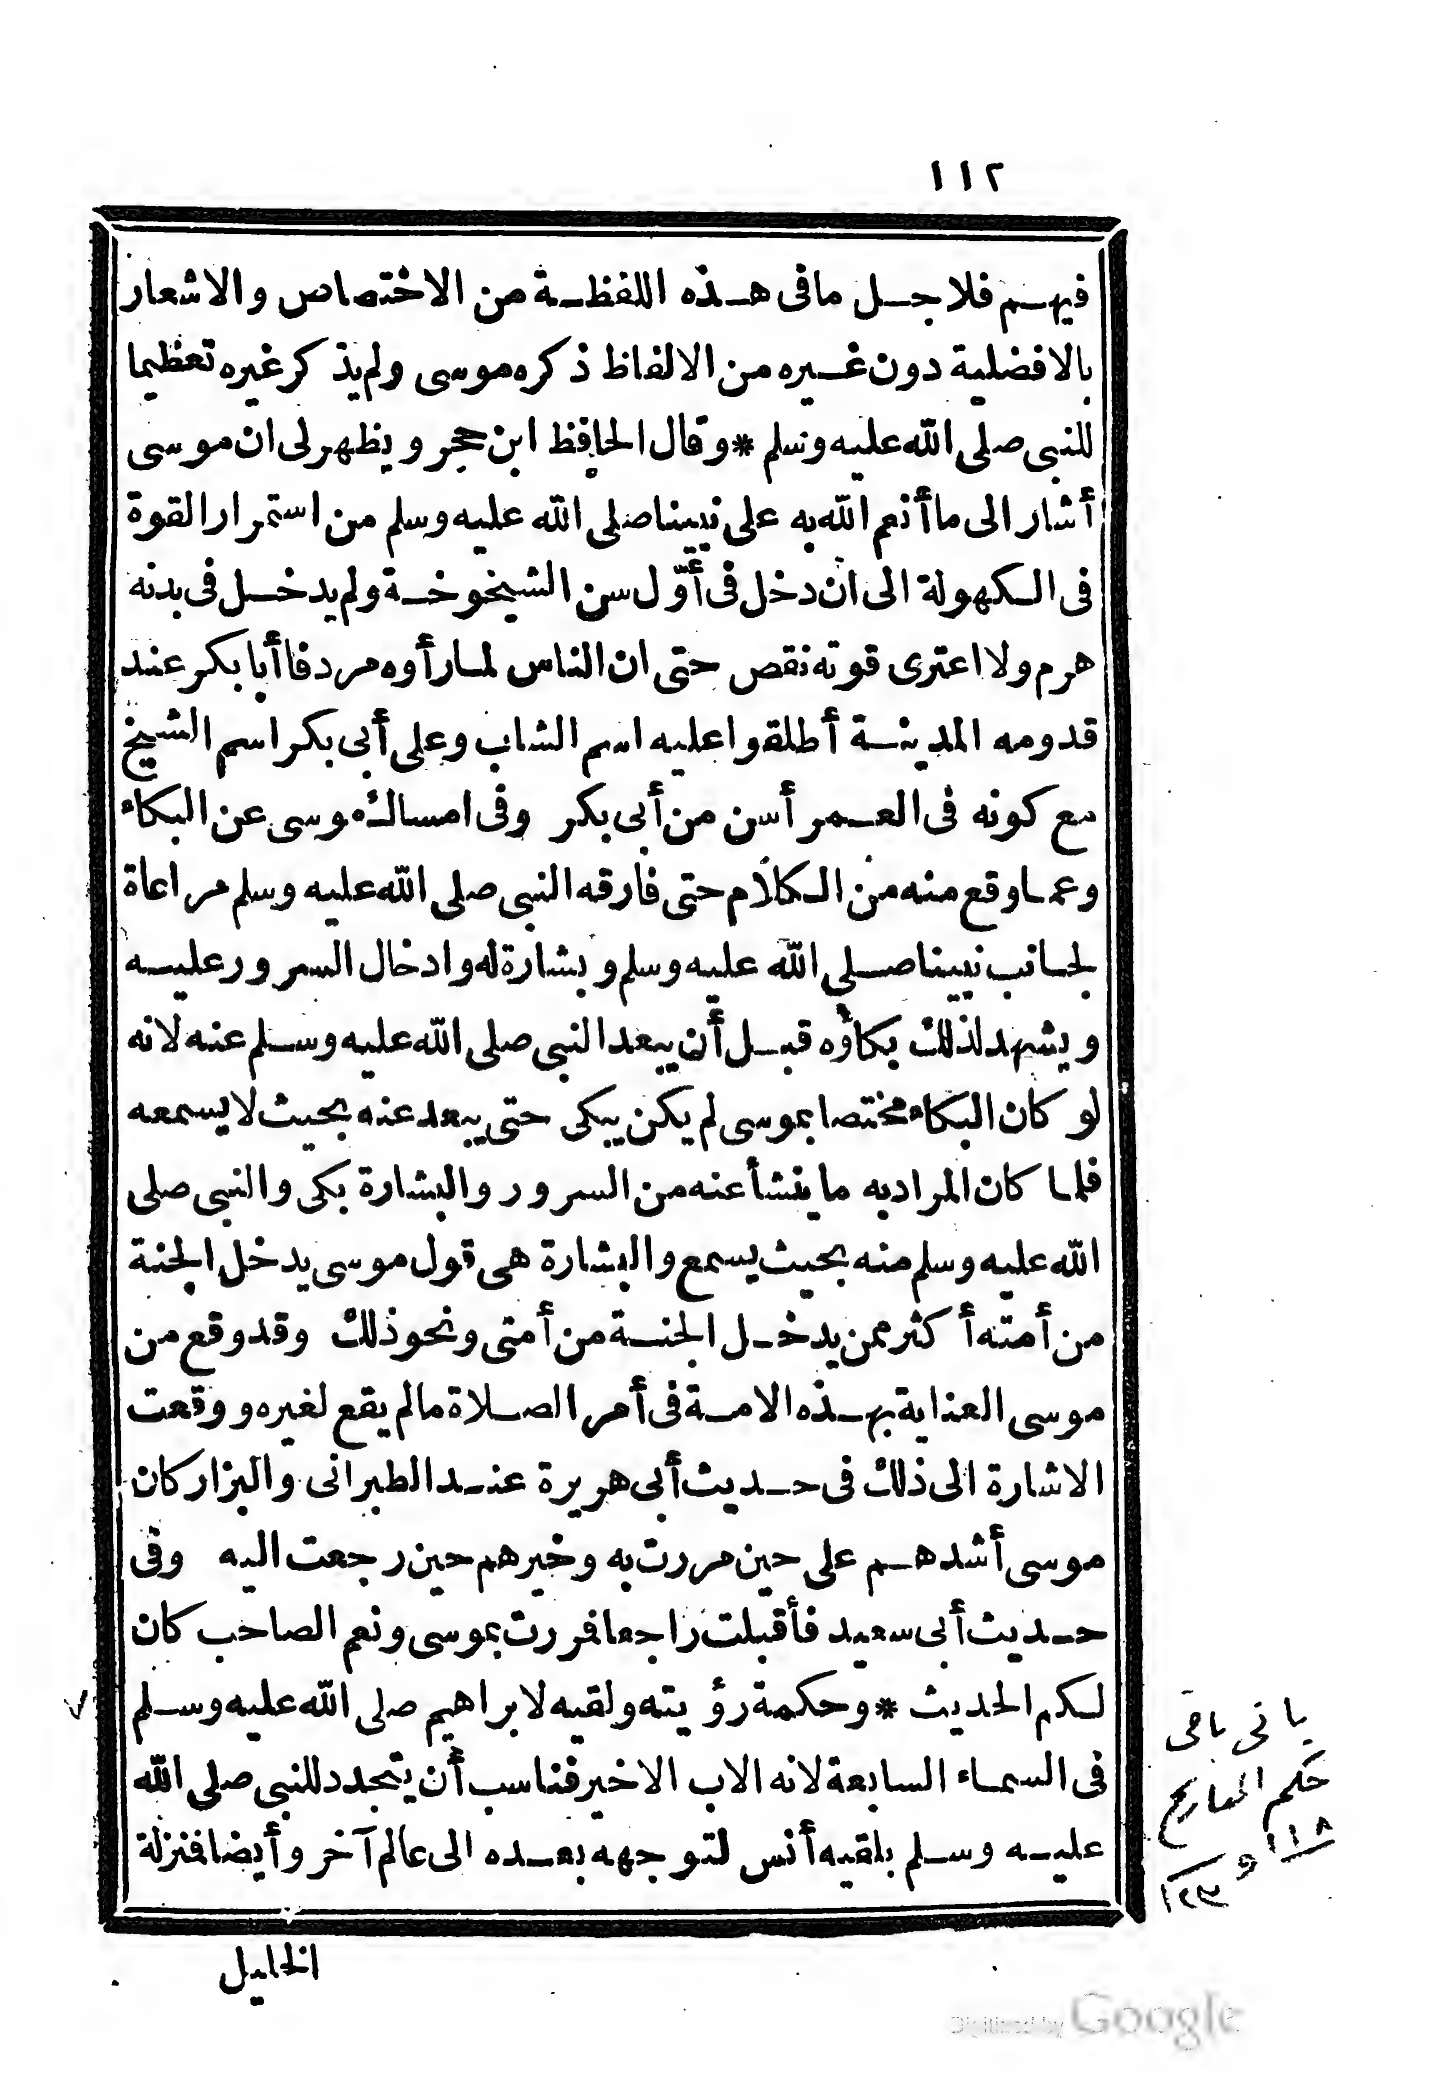 ١١٢
فيهم فلاجل مافى هذه اللفظة من الاختصاص والاشعار
بالافضلية دون غيره من الالفاظ ذكره موسى ولم يذكر غيره تعظيما
للنبى صلى الله عليه وسلم * وقال الحافظ ابن حجر ويظهر لى ان موسى
أشار الى ما أنعم الله به على نبينا صلى الله عليه وسلم من استمرار القوة
فى الكهولة الى ان دخل فى أوّل سن الشيخوخة ولم يدخل فى بدنه
هرم ولا اعترى قوته نقص حتى ان الناس لما رأوه مردفا أبا بكر عند
قدومه المدينة أطلقوا عليه اسم الشاب وعلى أبى بكر اسم الشيخ
مع كونه فى العمر أسن من أبى بكر وفى امساك موسى عن البكاء
وعما وقع منه من الكلام حتى فارقه النبى صلى الله عليه وسلم مراعاة
لجانب نبينا صلى الله عليه وسلم وبشارة له وادخال السرور عليه
ويشهد لذلك بكاؤه قبل أن يبعد النبى صلى الله عليه وسلم عنه لانه
لو كان البكاء مختصا بموسى لم يكن يبكى حتى يبعد عنه بحيث لا يسمعه
فلما كان المراد به ما ينشأ عنه من السرور والبشارة بكى والنبى صلى
الله عليه وسلم منه بحيث يسمع والبشارة هى قول موسى يدخل الجنة
من أمته أكثر ممن يدخل الجنة من أمتى ونحو ذلك وقد وقع من
موسى العناية بهذه الامة فى أمر الصلاة مالم يقع لغيره ووقعت
الاشارة الى ذلك فى حديث أبى هريرة عند الطبرانى والبزار كان
موسى أشدهم على حين مررت به وخيرهم حين رجعت اليه وفى
حديث أبى سعيد فأقبلت راجعا فمررت بموسى ونعم الصاحب كان
لكم الحديث * وحكمة رؤيته ولقيه لابراهيم صلى الله عليه وسلم
فى السماء السابعة لانه الاب الاخير فناسب أن يتجدد للنبى صلى الله
عليه وسلم بلقيه أنس لتوجهه بعده الى عالم آخر وأيضا فمنزلة
الخليل
يأتى باقى
حكم المعاريج
١١٨
و ١٢٣
Digitized by Google